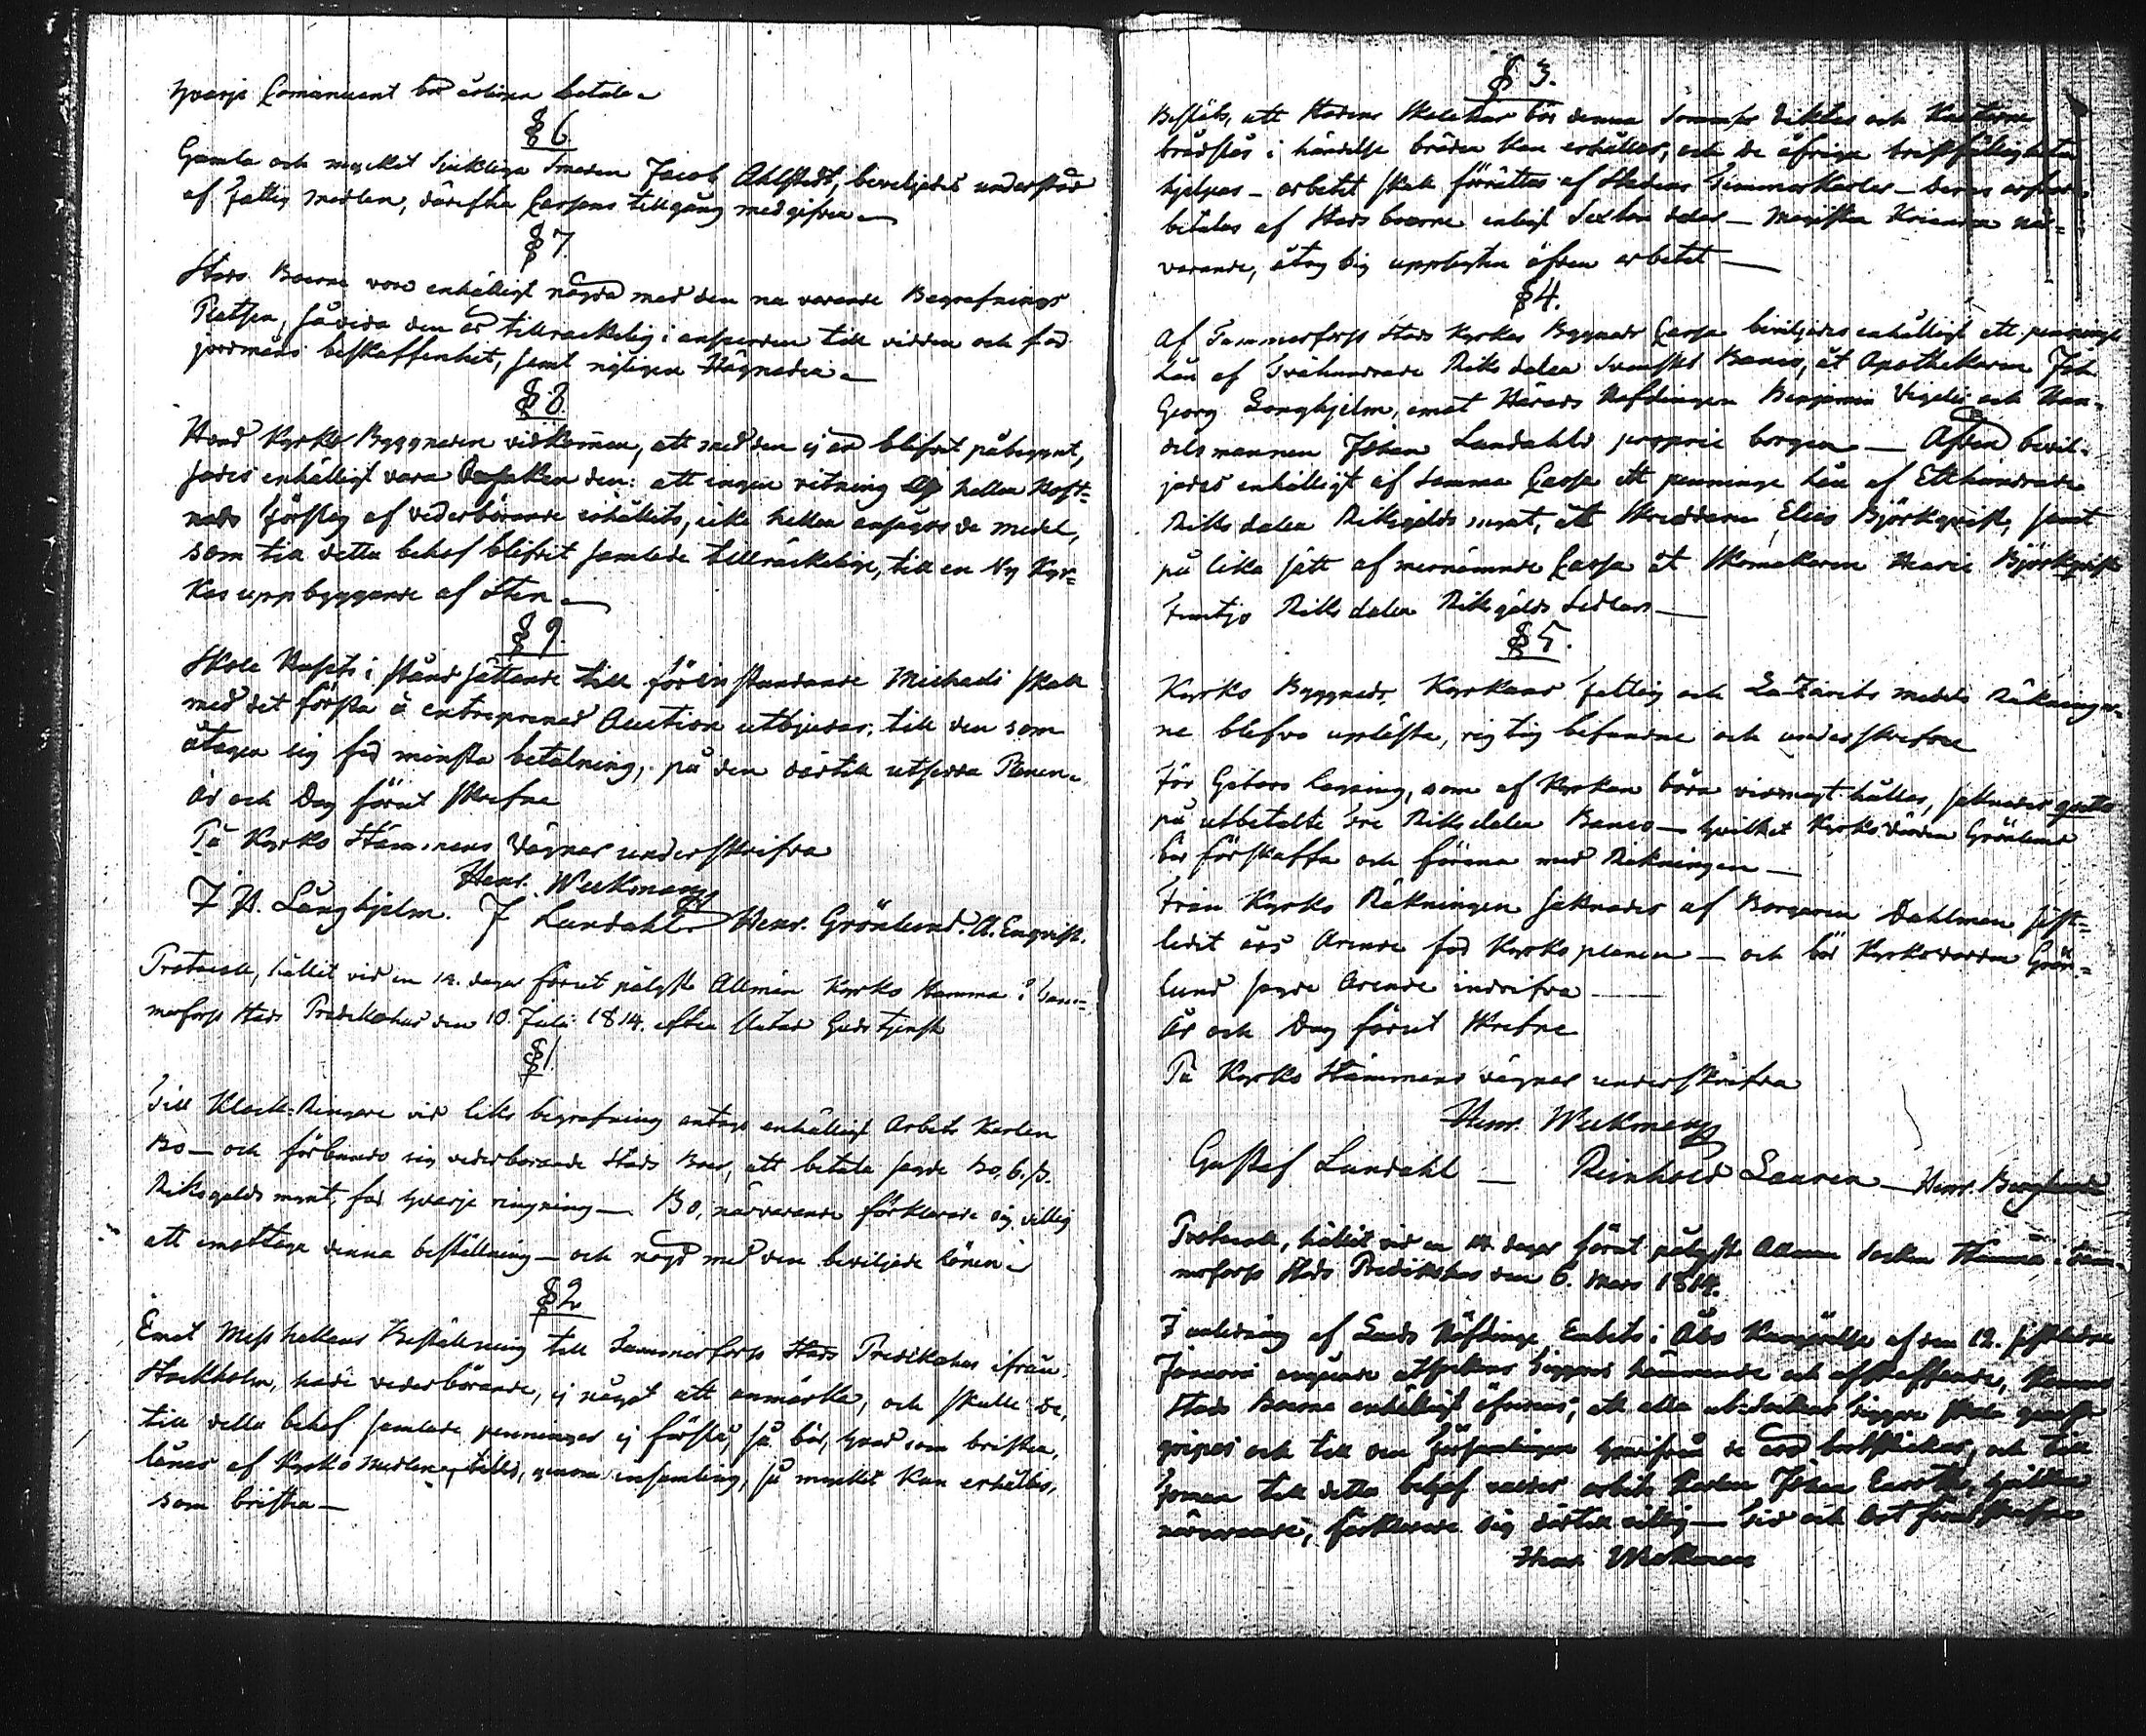 hvarje Comunicant bör årligen betala.
§ 6.
Gamla och mycket Sjuklige Smeden Jacob Ahlstedt, beviljades understöd
af Fattig Medlen, därefter Cassans tillgång medgifver.
§ 7.
Stads Boerne voro enhälligt nögda med den nu varande Begrafnings
Platsen, såvida den är tillräckelig i anseende till vidden och för
jordmåns beskaffenhet, samt nyligen Hägnader.
§ 8.
Hvad Kyrko Byggnaden vidkommer, att med den ej än blifvit påbegynt,
sades enhälligt vara Orsaken den: att ingen ritning ej heller Kost=
nads Förslag af vederbörande erhållits, icke heller ansågos de medel,
som till detta behof blifvit samlade tillräckelige, till en Ny Kyr=
kas uppbyggande af Sten.
§ 9.
Skole Husets i stånd sättande till förinstundande Michaeli skall
med det första å entreprenad Auction utbjudas, till den som
åtager sig för minsta betalning, på den därtill utsedda Planen.
År och Dag förut skrefne
På Kyrko Stämmans Vägnar underskrifva
Henr. Weckman
J H. Långhjelm. J Lundahl Henr. Grönlund. A. Enqvist.
Protocoll, hållit vid en 14. dagar förut pålyst Allmän Kyrko Stämma i Tam=
merfors Stads Predikohus den 10. Julii 1814. efter slutad Gudstjenst
§ 1.
Till Klock-Ringare vid liks begrafning antogs enhälligt Arbets Karlen
Bo — och förbundo sig vederbörande Stads Boer, att betala sagde Bo, 6. s.
Riksgälds mynt, för hvarje ringning — Bo, närvarande förklarade sig villig
att emottaga denna beställning — och nögd med den beviljade Lönen.
§ 2
Emot Messhakens Beställning till Tammerfors Stads Predikohus ifrån
Stockholm, hade vederbörande, ej något att anmärka, och skulle de,
till detta behof samlade penningar ej förslå, så bör, hvad som brister,
lånas af Kyrko Medlen, tills, genom insamling, så mycket kan erhållas,
som brister —
§ 3.
Beslöts, att Stadens Skolehus bör denna Sommar diktas och
brädslås i händelse bräder kan erhållas, och de öfriga bristfälligheter
hjelpas — arbetet skall förrättas af Stadens Timmerkarlar — deras
betalas af Stads boerne enligt — när=
varande, åtog sig upplysta öfven arbetet —
§ 4.
Af Tammerfors Stads Kyrkos Byggnads Cassa beviljades enhälligt ett pennings
Lån af Tvåhundrade Riksdaler Svenskt Banco, åt Apothekaren Joh
Georg Långhjelm, emot Härads Höfdingen Benjamin Vigelii och Han=
delsmannen Johan Lundahls proprie borgen — Äfven bevil=
jades enhälligt af samma Cassa ett penninge lån af Etthundrade
Riksdaler Riksgälds mynt, åt Skräddaren Elias Björkqvist, samt
på lika sätt af mernämnde Cassa åt Skomakaren Björkqvist
Femtjo Riksdaler Riksgälds Sedlar —
§ 5.
Kyrko Byggnads, Kyrkans Fattig och Lazarets medels Räkningar=
ne blefvo upläste, rigtig befundne och underskrefne
För Gatans lagning, som af Kyrkan böra vidmagt hållas, saknades qvitto
på utbetalte tre Riksdaler Banco — hvilket Kyrkovärden Grönlund
bör förskaffa och förena med Räkningen —
Från Kyrko Räkningen saknades af Borgaren Dahlman sist=
ledit års Arende för Kyrko planen — och bör Kyrkovärden Grön=
lund sagde Arende indrifva —
År och Dag förut skrefne
På Kyrko Stämmans vägnar underskrifva
Henr. Weckman
Gustaf Lundahl — Reinhold Lauren — Henr. Berglund
Protocoll, hållit vid en 14. dagar förut pålyst Allmän Socken Stämma i Tam=
merfors Stads Predikohus den 6. Mars 1814.
I anledning af Lands Höfdinge Embets i Åbo Kungörelse af den 12. sistledne
Januari angående utsocknes Tiggares hämmande och afskaffande,
Stads Boerne enhälligt öfverens, att alla utsocknes tiggare skola genast
gripas och till den Församlingen hvarifrån de äro bortskickas, och till
Foman till detta behof valdes arbets Karlen Johan Enroth, hvilken
närvarande, förklarade sig därtill villig — Tid och Ort förutskrefne
Henr Weckman